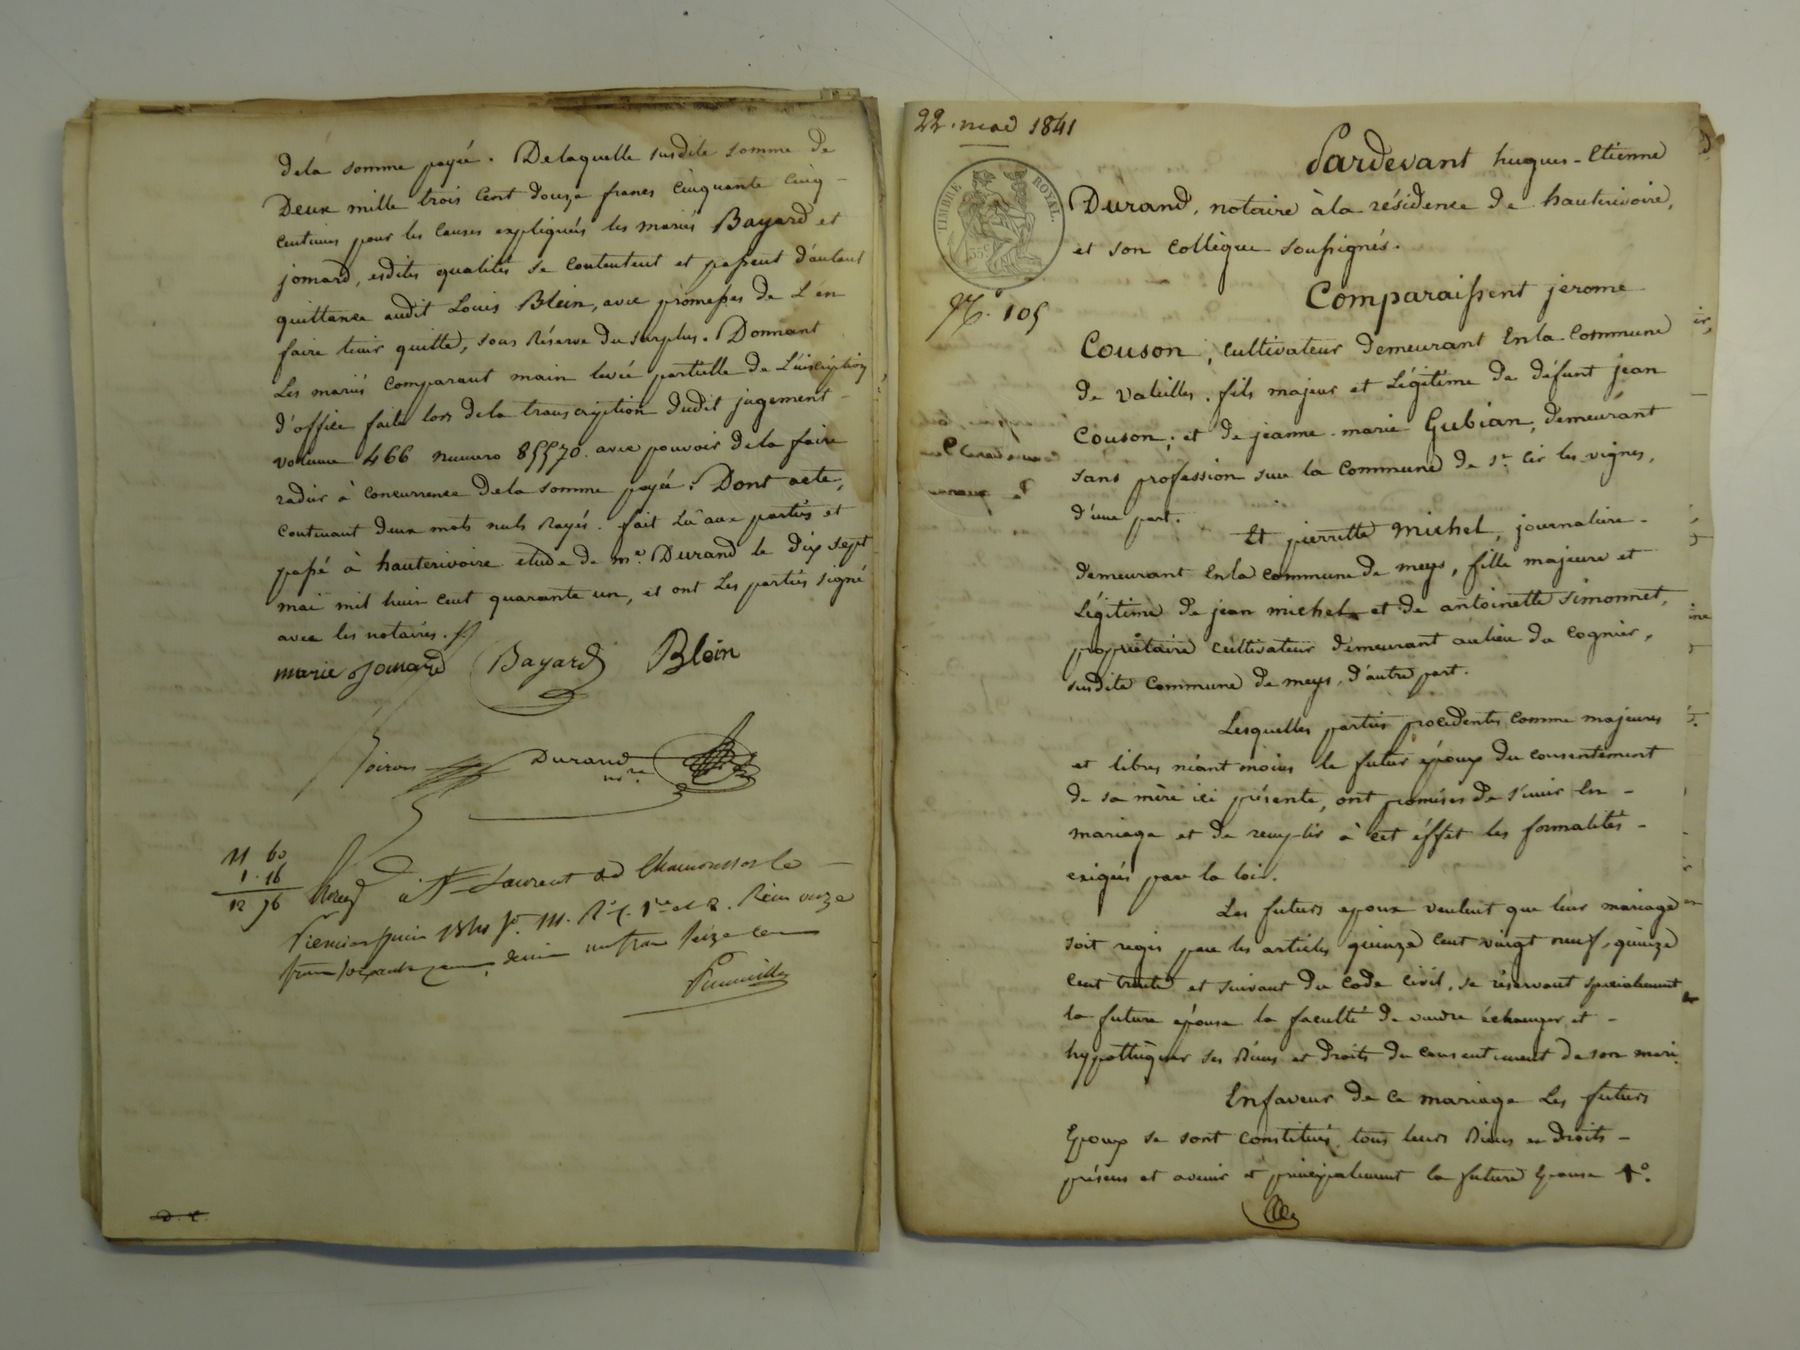 dela somme payée. Delaquelle susdite somme de
Deux mille trois Cent douze francs Cinquante cinq
centimes pour les causes expliquées les mariés Bayard et
jomard, esdites qualités se contentent et passent d'autant
quittance audit Louis Blein, avec promesses de L'en
faire tenir quitte, sous Réserve du surplus. Donnant
Les mariés comparant main levée partielle de L'inscription
d'office faite lors dela transcription dudit jugement
volume 466 numero 85570. avec pouvoir dela faire
radier à concurrence dela somme payée. Dont acte,
contenant deux mots nuls Rayés. fait Lû aux parties et
passé à hauterivoire etude de me. Durand le dix sept
mai mil huit cent quarante un, et ont Les parties signé
avec les notaires.
marie Jomard Bayard Blein
Durand
nre.
11 60
1. 16
12 76
à St Laurent de Chamousset le
Premier juin 1841 fo. 111. Ro. C. 1re et 2. Reçu onze
francs soixante cent, décime un franc seize cen
d. t.
22. mai 1841
TIMBRE ROYAL.
No. 105
Pardevant hugues-Etienne
Durand, notaire àla résidence de hauterivoire,
et son collègue soussignés.
Comparaissent jerome
Couson, cultivateur demeurant Enla Commune
de valeilles, fils majeur et Légitime de défunt jean
Couson; et de jeanne-marie Gubian, demeurant
sans profession sur la Commune de st. Cir les vignes,
d'une part.
Et pierrette Michel, journalière
demeurant Enla commune de meys, fille majeure et
Légitime de jean michel et de antoinette Simonnet,
propriétaire cultivateur demeurant aulieu du Cognier,
susdite Commune de meys, d'autre part.
Lesquelles parties procedentes comme majeures
et libres néant moins le futur époux du consentement
de sa mère ici présente, ont promises de s'unir En
mariage et de remplir à cet éffet les formalités
exigées par la loi.
Les futurs epoux veulent que leur mariage
soit regis par les articles quinze cent vingt neuf, quinze
cent trente et suivant du Code Civil, se réservant specialement
la future épouse la faculté de vendre échanger et
hypothéquer ses Biens et droits du consentement de son mari.
Enfaveur de ce mariage Les futurs
Epoux se sont constitués tous leurs Biens et droits
présens et avenir et principalement la future Epouse 1o.